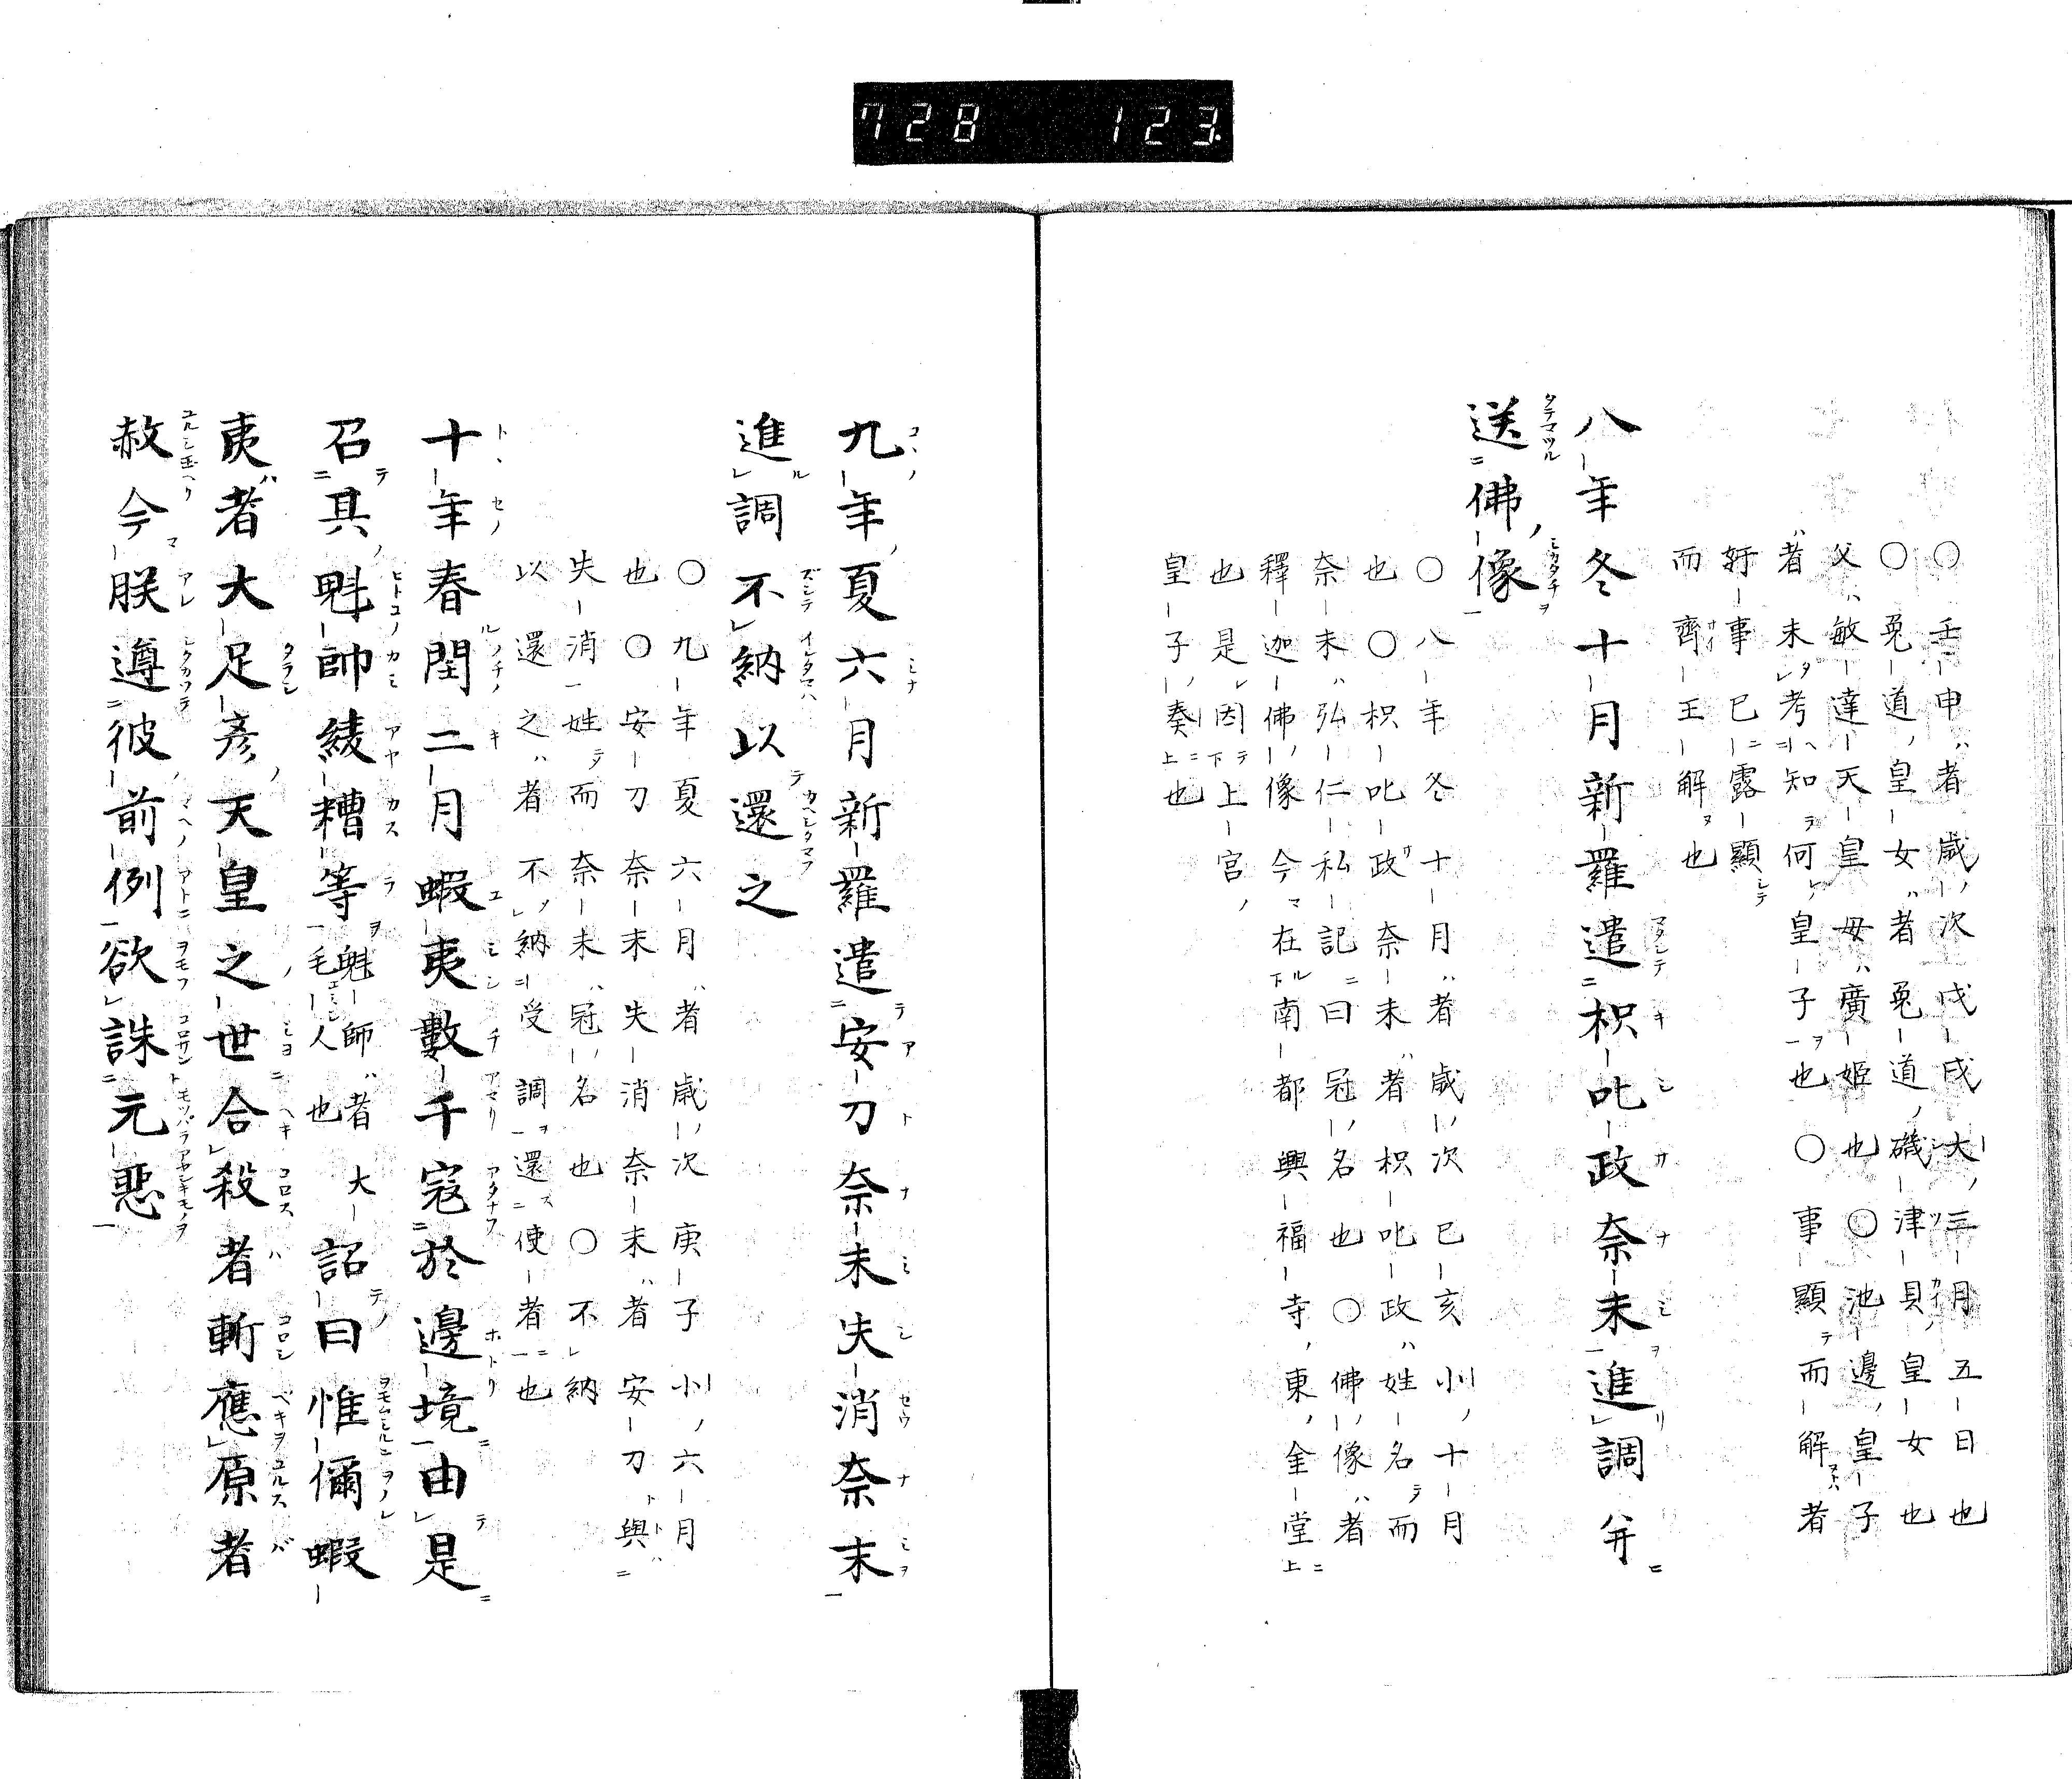 728 123
〇壬申者歳次戊戌大三月五日也
〇菟道皇女者菟道磯津貝皇女也
父敏達天皇母廣姬也〇池邊皇子
者未考知何皇子也〇事顯而解者
姧事已露顯
而齊王解也
八年冬十月新羅遣枳叱政奈未進調并
送佛像
〇八年冬十月者歳次己亥小十月
也〇枳叱政奈未者枳叱政姓名而
奈未弘仁私記曰冠名也〇佛像者
釋迦佛像今在南都興福寺東金堂
也是因上宮
皇子奏也
九年夏六月新羅遣安刀奈未失消奈末
進調不納以還之
〇九年夏六月者歳次庚子小六月
也〇安刀奈末失消奈末者安刀與
失消姓而奈未冠名也〇不納
以還之者不納受調還使者也
十年春閏二月蝦夷數千寇於邊境由是
召其魁帥綾糟等魁師者大毛人也詔曰惟儞蝦
夷者大足彥天皇之世合殺者斬應原者
赦今朕遵彼前例欲誅元惡